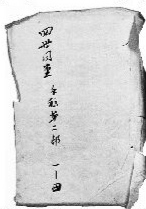 四世同堂 手稿第二部 一—四